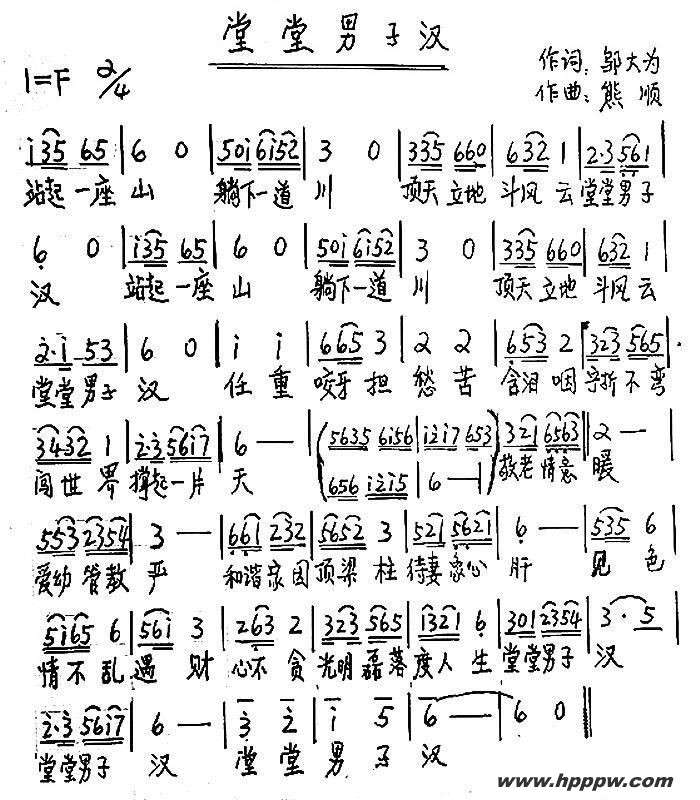 堂堂男子汉
1=F 2/4
作词：邬大为
作曲：熊顺
i35 65 | 6 0 | 50i 6i52 | 3 0 | 335 660 | 632 1 | 2·3 561 |
站起一座山 躺下一道川 顶天立地斗风云堂堂男子
6 0 | i35 65 | 6 0 | 50i 6i52 | 3 0 | 335 660 | 632 1 |
汉 站起一座山 躺下一道川 顶天立地斗风云
2·i 53 | 6 0 | i i | 665 3 | 2 2 | 653 2 | 323 565 |
堂堂男子汉 任重咬牙担愁苦含泪咽宁折不弯
3432 1 | 2·3 56i7 | 6 — | (5635 6i56 | i2i7 653 | 321 6563 || 2 —
656 i2i5 | 6 — )
闯世界撑起一片天 敬老情意暖
553 2354 | 3 — | 661 232 | 5652 3 | 521 5621 | 6 — | 535 6
爱幼管教严 和谐家园顶梁柱待妻家心肝 见色
5i65 6 | 56i 3 | 263 2 | 323 565 | 1321 6 | 301 2354 | 3·5
情不乱遇财心不贪光明磊落度人生堂堂男子汉
2·3 56i7 | 6 — | 3 2 | i 5 | 6 — | 6 0 ||
堂堂男子汉 堂堂男子汉
www.hpppw.com